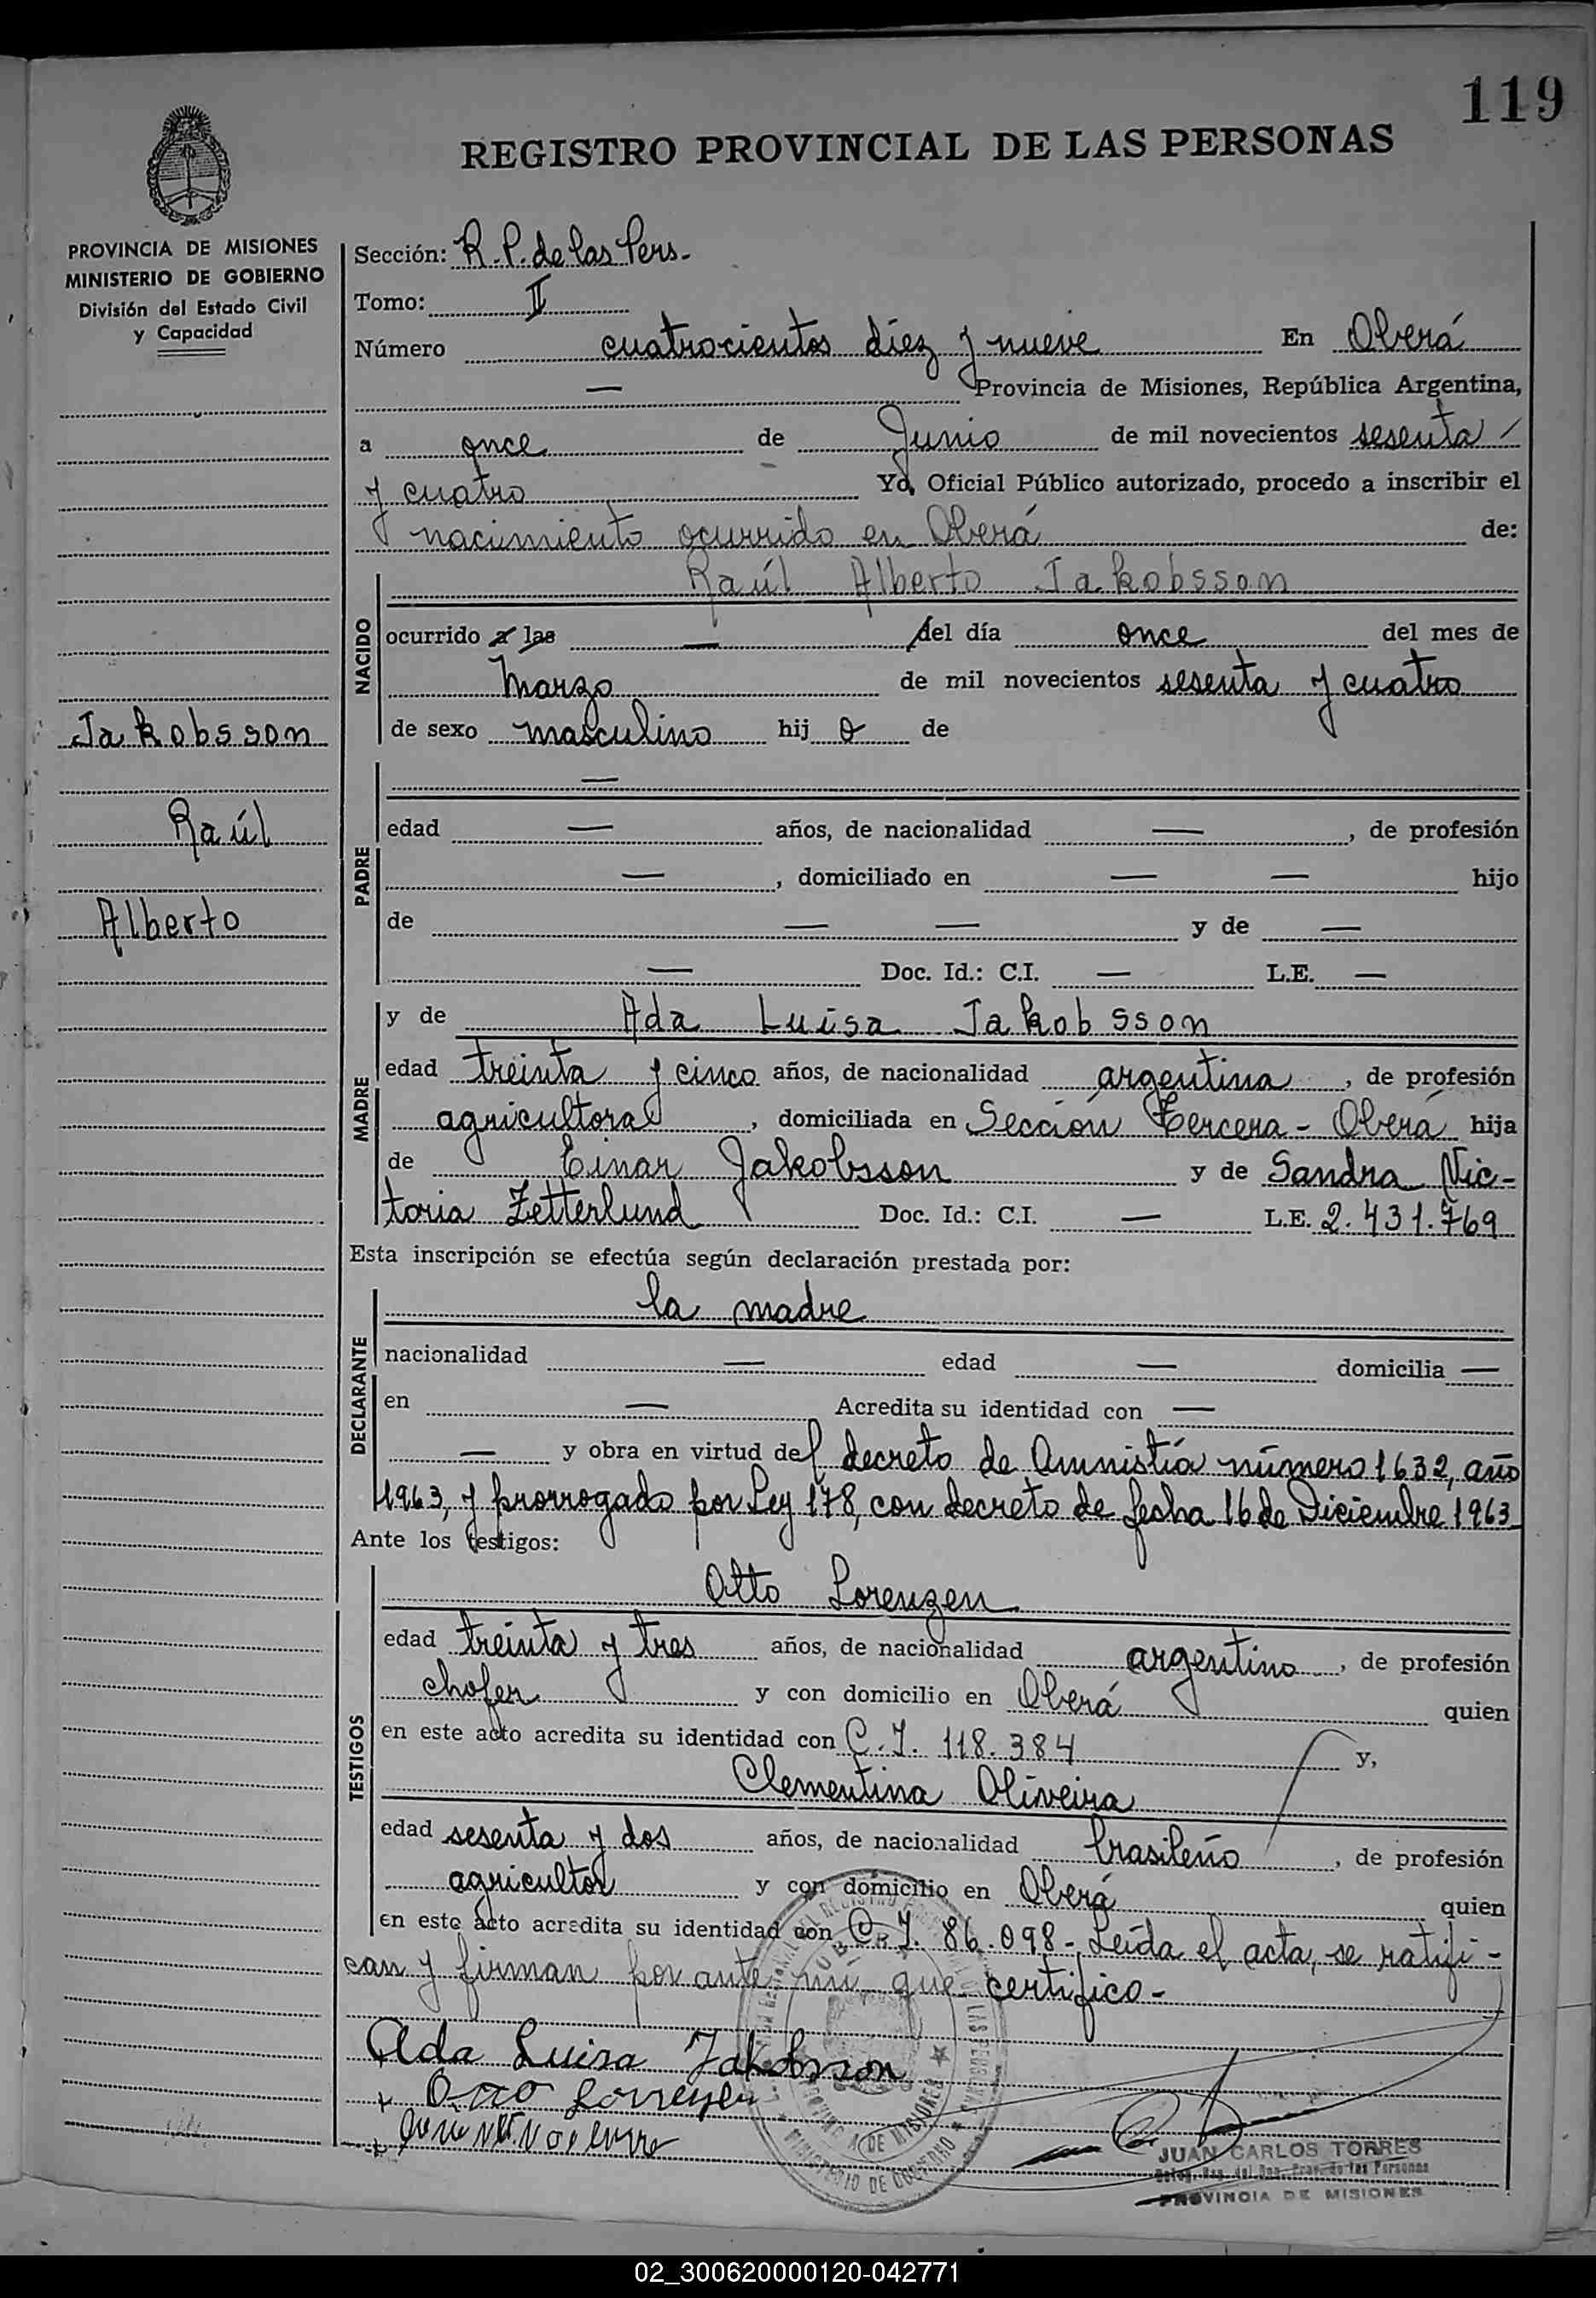 119
REGISTRO PROVINCIAL DE LAS PERSONAS
PROVINCIA DE MISIONES
MINISTERIO DE GOBIERNO
División del Estado Civil
y Capacidad
Jakobsson
Raúl
Alberto
Sección: R.P. de las Pers.
Tomo: II
Número cuatrocientos diez y nueve En Oberá
— Provincia de Misiones, República Argentina,
a once de Junio de mil novecientos sesenta
y cuatro Yo, Oficial Público autorizado, procedo a inscribir el
nacimiento ocurrido en Oberá de:
NACIDO
Raúl Alberto Jakobsson
ocurrido a las — del día once del mes de
Marzo de mil novecientos sesenta y cuatro
de sexo masculino hijo de
PADRE
—
edad — años, de nacionalidad —, de profesión
—, domiciliado en — — hijo
de — — y de —
— Doc. Id.: C.I. — L.E. —
MADRE
y de Ada Luisa Jakobsson
edad treinta y cinco años, de nacionalidad argentina, de profesión
agricultora, domiciliada en Sección Tercera - Oberá hija
de Einar Jakobsson y de Sandra Vic-
toria Zetterlund Doc. Id.: C.I. — L.E. 2.431.769
Esta inscripción se efectúa según declaración prestada por:
DECLARANTE
la madre
nacionalidad — edad — domicilia —
en — Acredita su identidad con —
— y obra en virtud del decreto de Amnistía número 1632, año
1963, y prorrogado por Ley 178, con decreto de fecha 16 de Diciembre 1963
Ante los testigos:
TESTIGOS
Otto Lorenzen
edad treinta y tres años, de nacionalidad argentino, de profesión
chofer y con domicilio en Oberá quien
en este acto acredita su identidad con C.I. 118.384 y,
Clementina Oliveira
edad sesenta y dos años, de nacionalidad brasileño, de profesión
agricultor y con domicilio en Oberá quien
en este acto acredita su identidad con C.I. 86.098-, Leída el acta, se ratifi-
can y firman por ante mí, que certifico-
Ada Luisa Jakobsson
+ Otto Lorenzen
JUAN CARLOS TORRES
PROVINCIA DE MISIONES
PROVINCIA DE MISIONES
MINISTERIO DE GOBIERNO
02_300620000120-042771